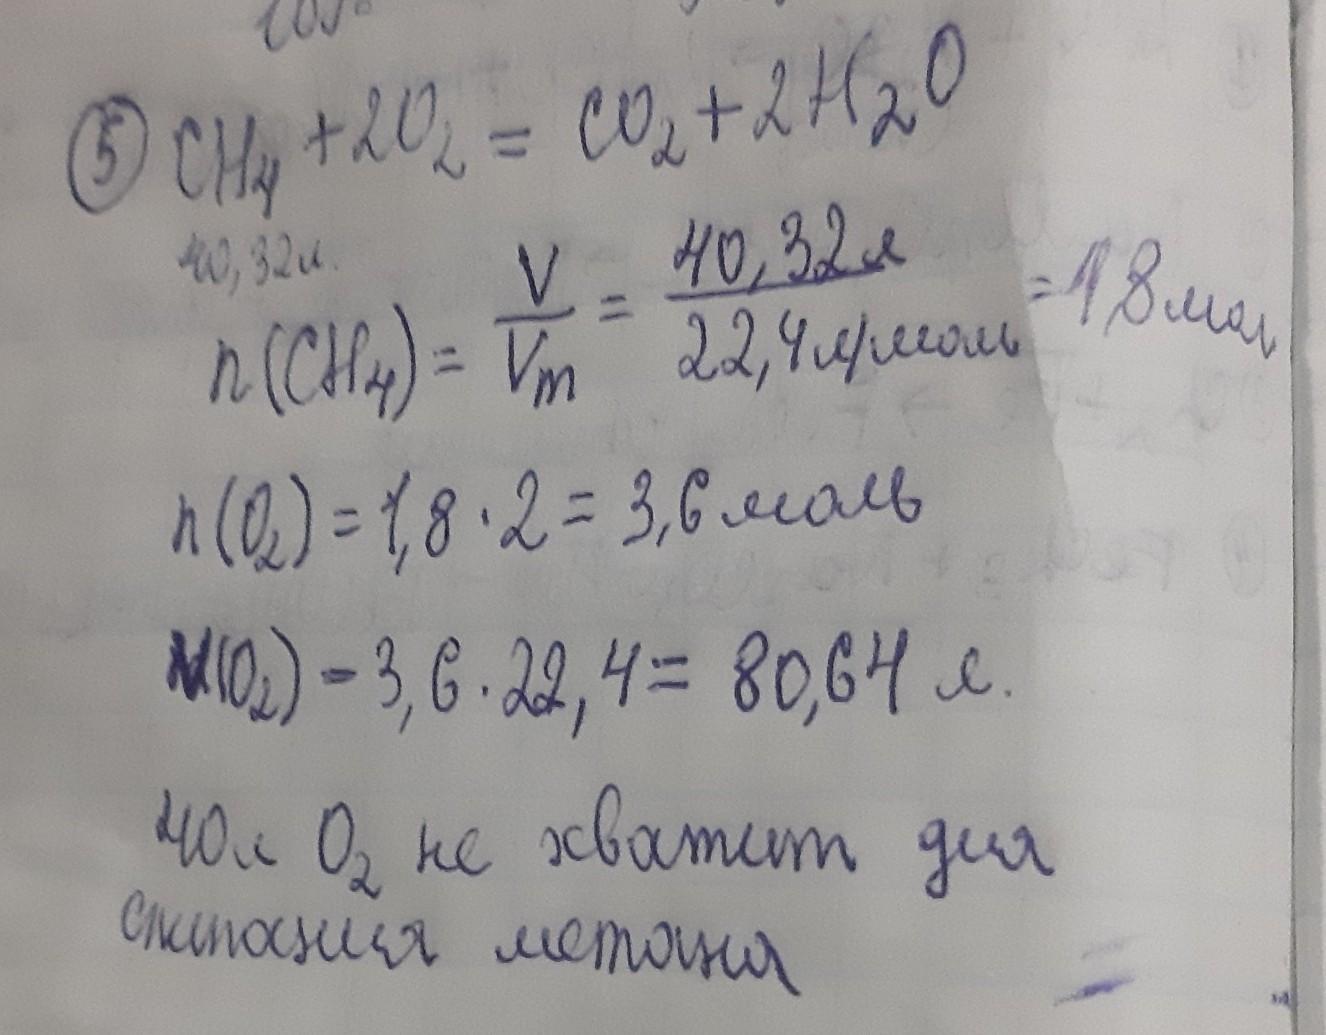 ⑤ CH₄ + 2O₂ = CO₂ + 2H₂O
40,32 л.
n(CH₄) = V/Vm = 40,32 л / 22,4 л/моль = 1,8 мол
n(O₂) = 1,8 · 2 = 3,6 моль
(O₂) - 3,6 · 22,4 = 80,64 л.
40 л O₂ не хватит для
сжигания метана